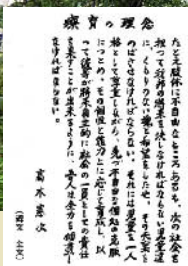 療育の理念
たとえ肢体に不自由なところあるも、次の社会を
担って我邦の将来を決しなければならない児童達
に、くもりのない魂と希望をもたせ、その天稟を
のばさせなければならない。それには児童を一人
格として尊重しながら、先づ不自由な個処の克服
につとめ、その個性と能力に応じて育成し、以
って彼等が将来自主的に社会の一員としての責任
を果すことが出来るように、吾人は全力を傾盡し
なければならない。
高木憲次
(碑文 全文)